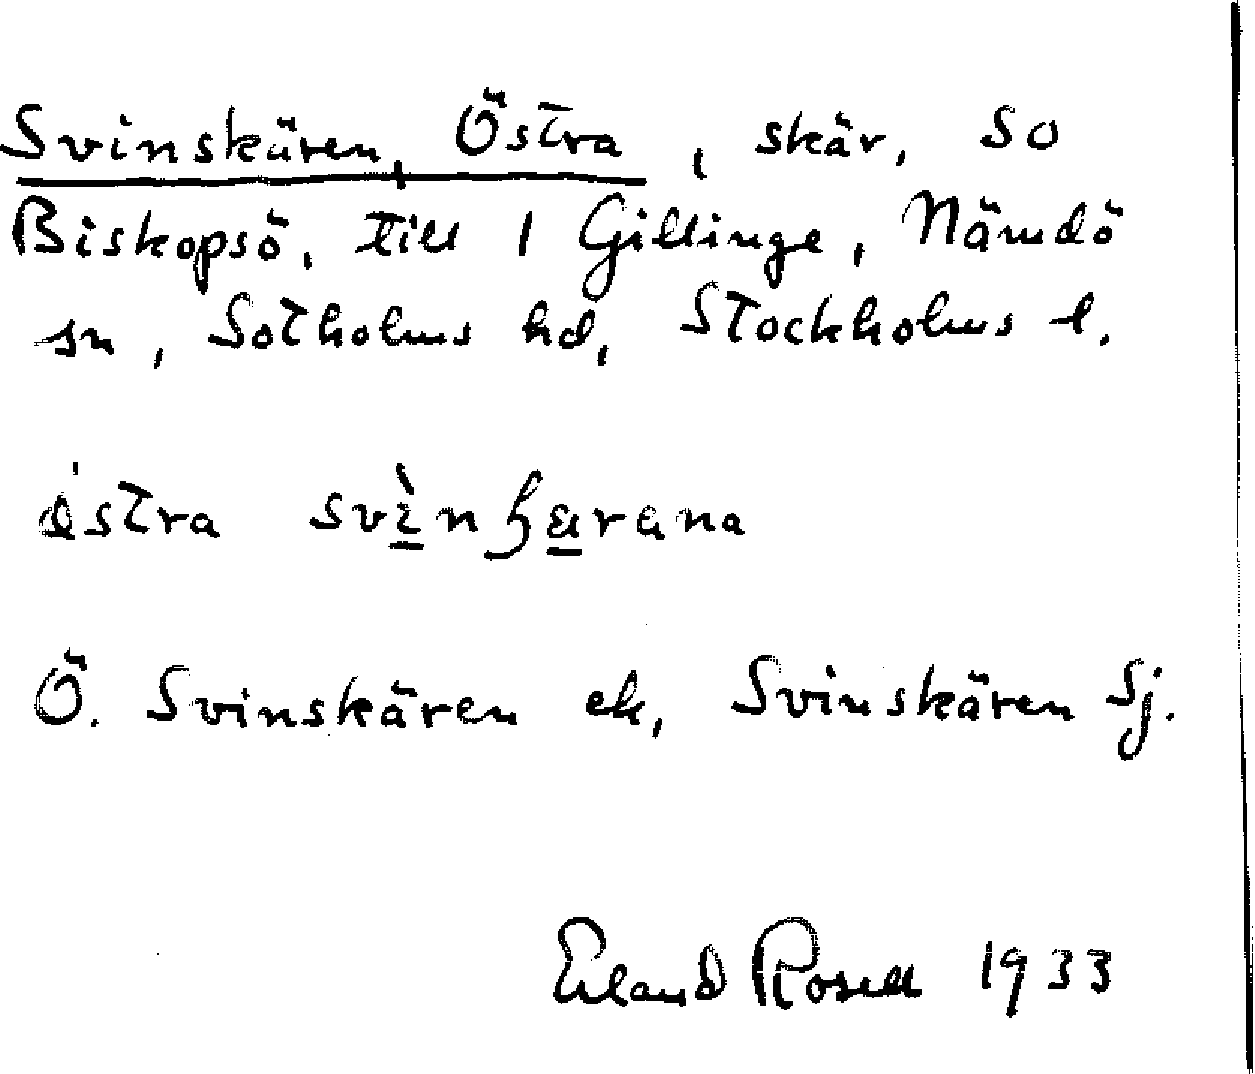 Svinskären, Östra, skär, SO
Biskopsö, till 1 Gillinge, Nämdö
sn, Sotholms hd, Stockholms l.
östra
Ö. Svinskären ek, Svinskären Sj.
Erland Rosell 1933